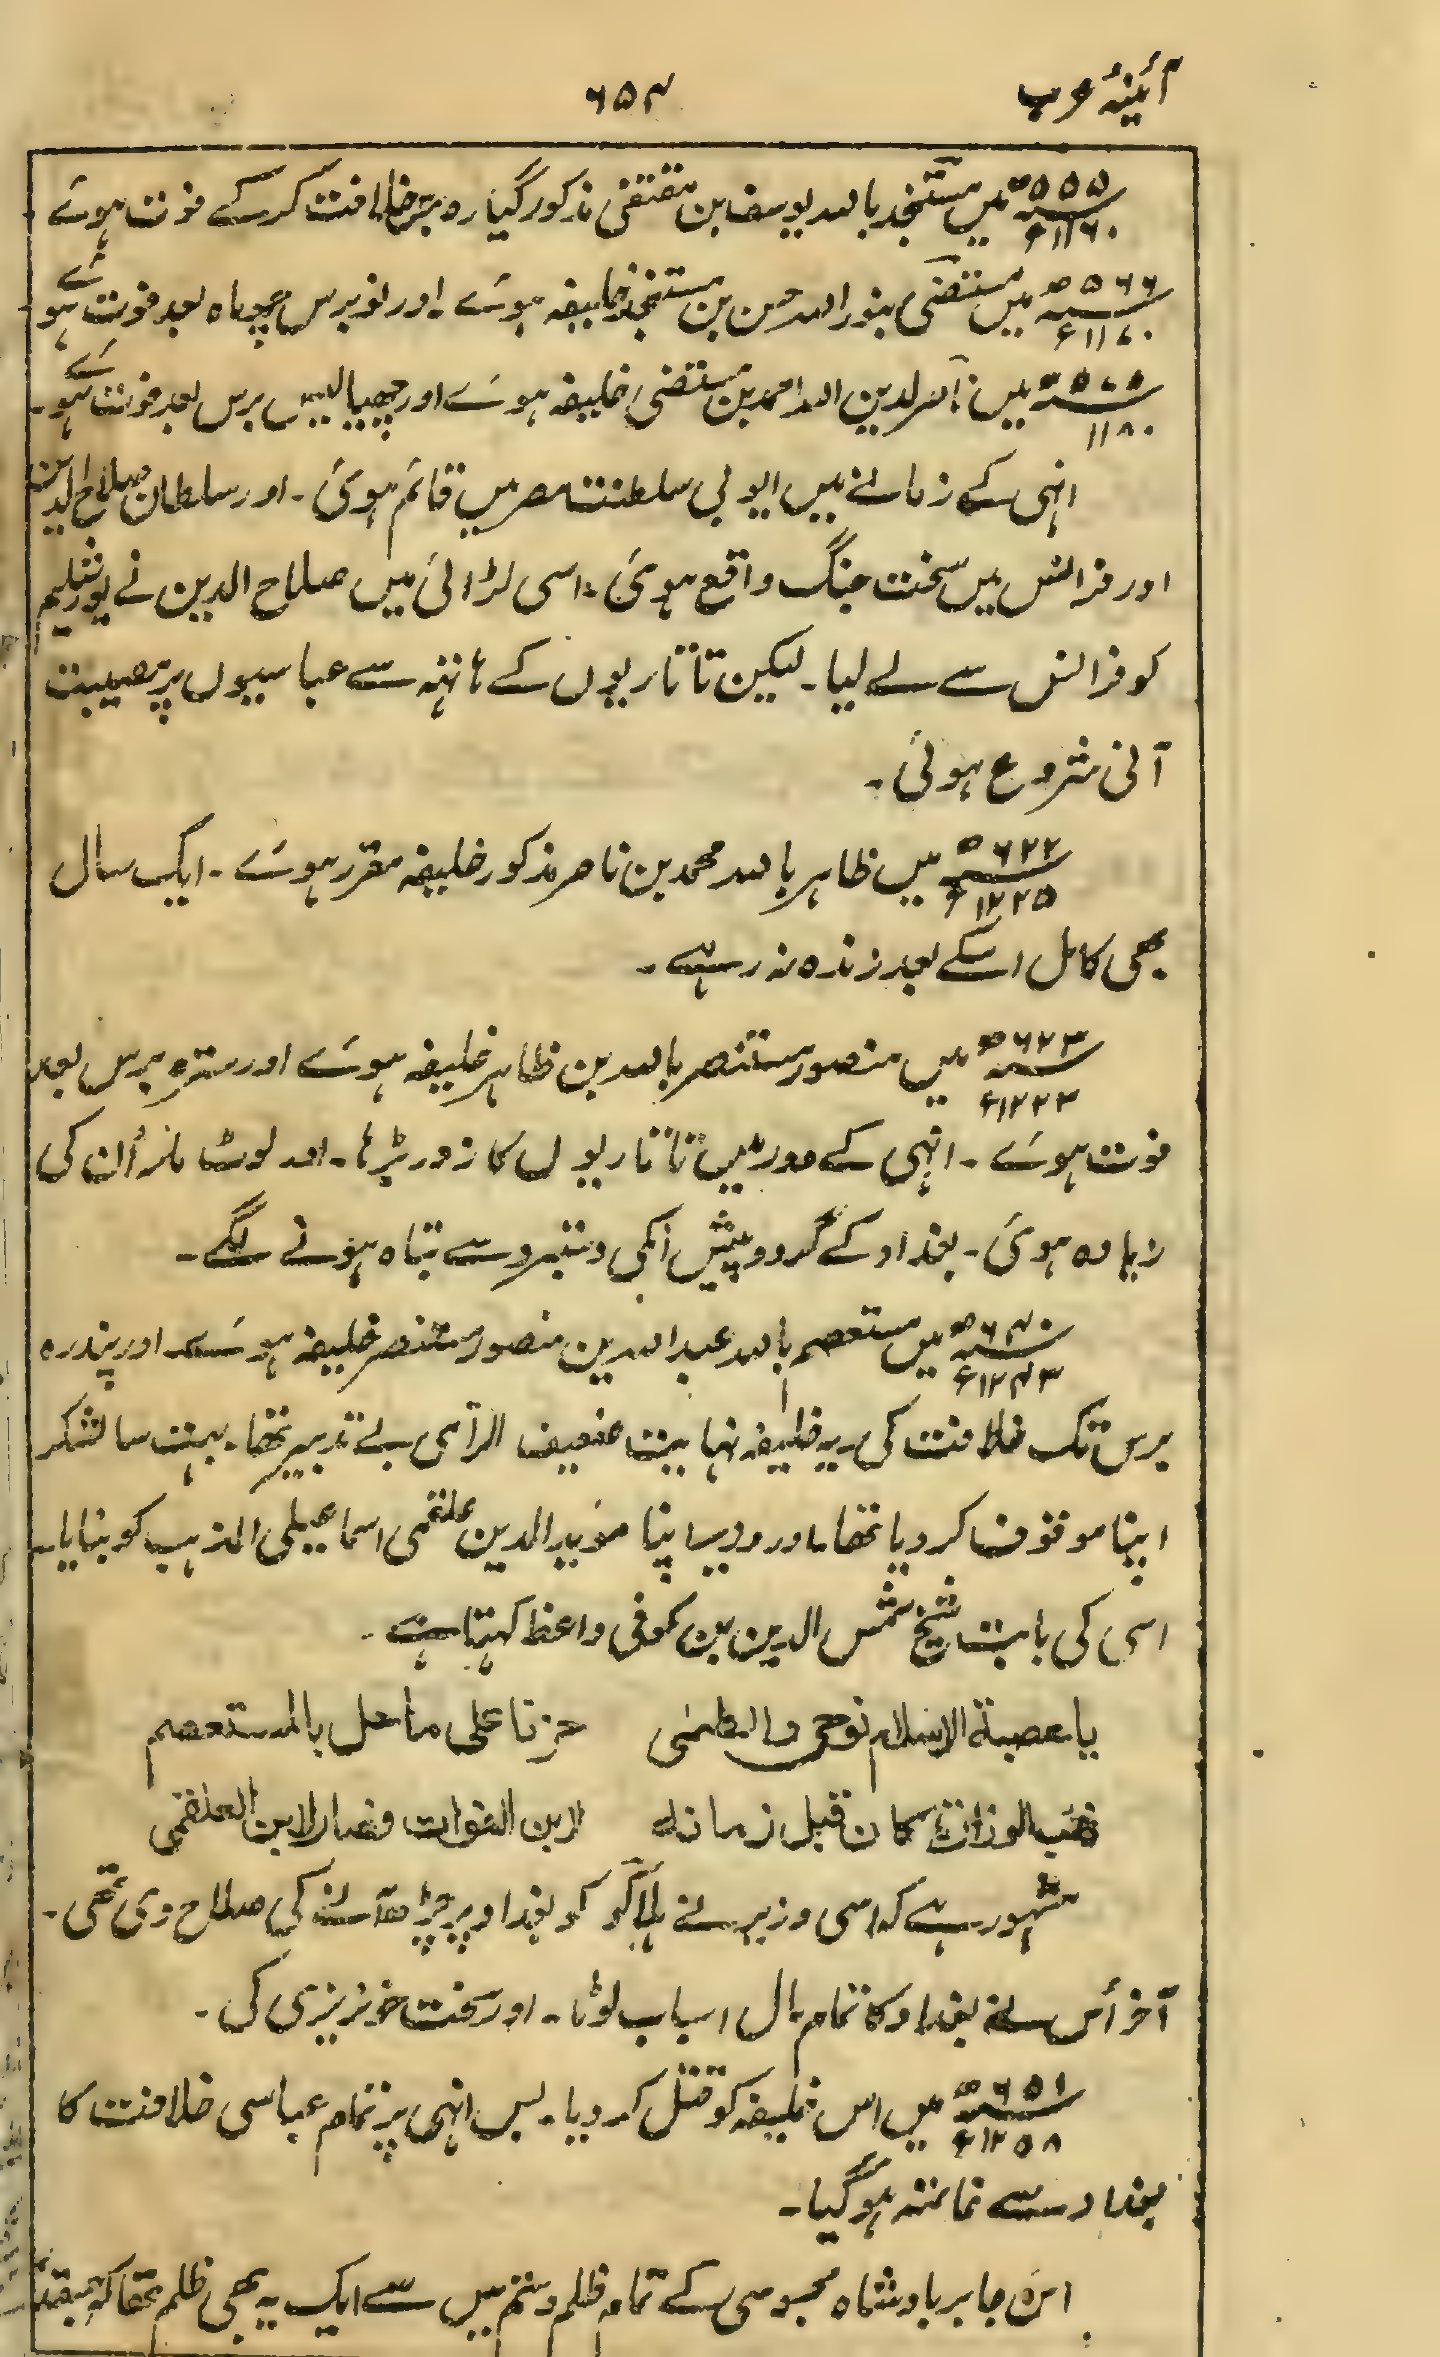 آئینۂ عرب ۶۵۴
۵۵۵ھ ۱۱۶۰ء میں مستنجد باللہ یوسف بن مقتفی مذکور گیارہ برس خلافت کرکے فوت ہوئے
۵۶۶ھ ۱۱۷۰ء میں مستضئی بنور اللہ حسن بن مستنجد خلیفہ ہوئے۔ اور نو برس چھ ماہ بعد فوت ہوئے
۵۷۵ھ ۱۱۸۰ میں ناصرلدین اللہ احمد بن مستضئی خلیفہ ہوئے اور چھیالیس برس بعد فوت ہوئے۔
انہی کے زمانے میں ایوبی سلطنت مصر میں قائم ہوئی۔ اور سلطان صلاح الدین
اور فرانس میں سخت جنگ واقع ہوئی۔ اسی لڑائی میں صلاح الدین نے یورشلیم
کو فرانس سے لے لیا۔ لیکن تاتاریوں کے ہاتھ سے عباسیوں پر مصیبت
آنی شروع ہوئی۔
۶۲۲ھ ۱۲۲۵ء میں ظاہر باللہ محمد بن ناصر مذکور خلیفہ مقرر ہوئے۔ ایک سال
بھی کامل اسکے بعد زندہ نہ رہے۔
۶۲۳ھ ۱۲۲۳ء میں منصور مستنصر باللہ بن ظاہر خلیفہ ہوئے اور سترہ برس بعد
فوت ہوئے۔ انہی کے دور میں تاتاریوں کا زور بڑہا۔ اور لوٹ مار اُن کی
زیادہ ہوئی۔ بغداد کے گرد و پیش انکی دستبرد سے تباہ ہونے لگے۔
۶۴۰ھ ۱۲۴۳ء میں مستعصم باللہ عبداللہ بن منصور مستنصر خلیفہ ہوئے۔ اور پندرہ
برس تک خلافت کی۔ یہ خلیفہ نہایت ضعیف الرآی بے تدبیر تھا۔ بہت سا لشکر
اپنا موقوف کر دیا تھا۔ اور وزیر اپنا مؤید الدین علقمی اسماعیلی المذہب کو بنایا۔
اسی کی بابت شیخ شمس الدین بن کوفی واعظ کہتا ہے۔
یا عصبة الاسلام نوحی والطمی حزنا علی ما حل بالمستعصم
دست الوزارة کان قبل زمانہ لابن الفرات فصار لابن العلقمی
مشہور ہے کہ اسی وزیر نے ہلاگو کو بغداد پر چڑھ آنے کی صلاح دی تھی۔
آخر اُس نے بغداد کا تمام مال اسباب لوٹا۔ اور سخت خونریزی کی۔
۶۵۱ھ ۱۲۵۸ء میں اس خلیفہ کو قتل کر دیا۔ بس انہی پر تمام عباسی خلافت کا
بغداد سے خاتمہ ہوگیا۔
اس جابر بادشاہ مجوسی کے تمام ظلم و ستم میں سے ایک یہ بھی ظلم تھا کہ